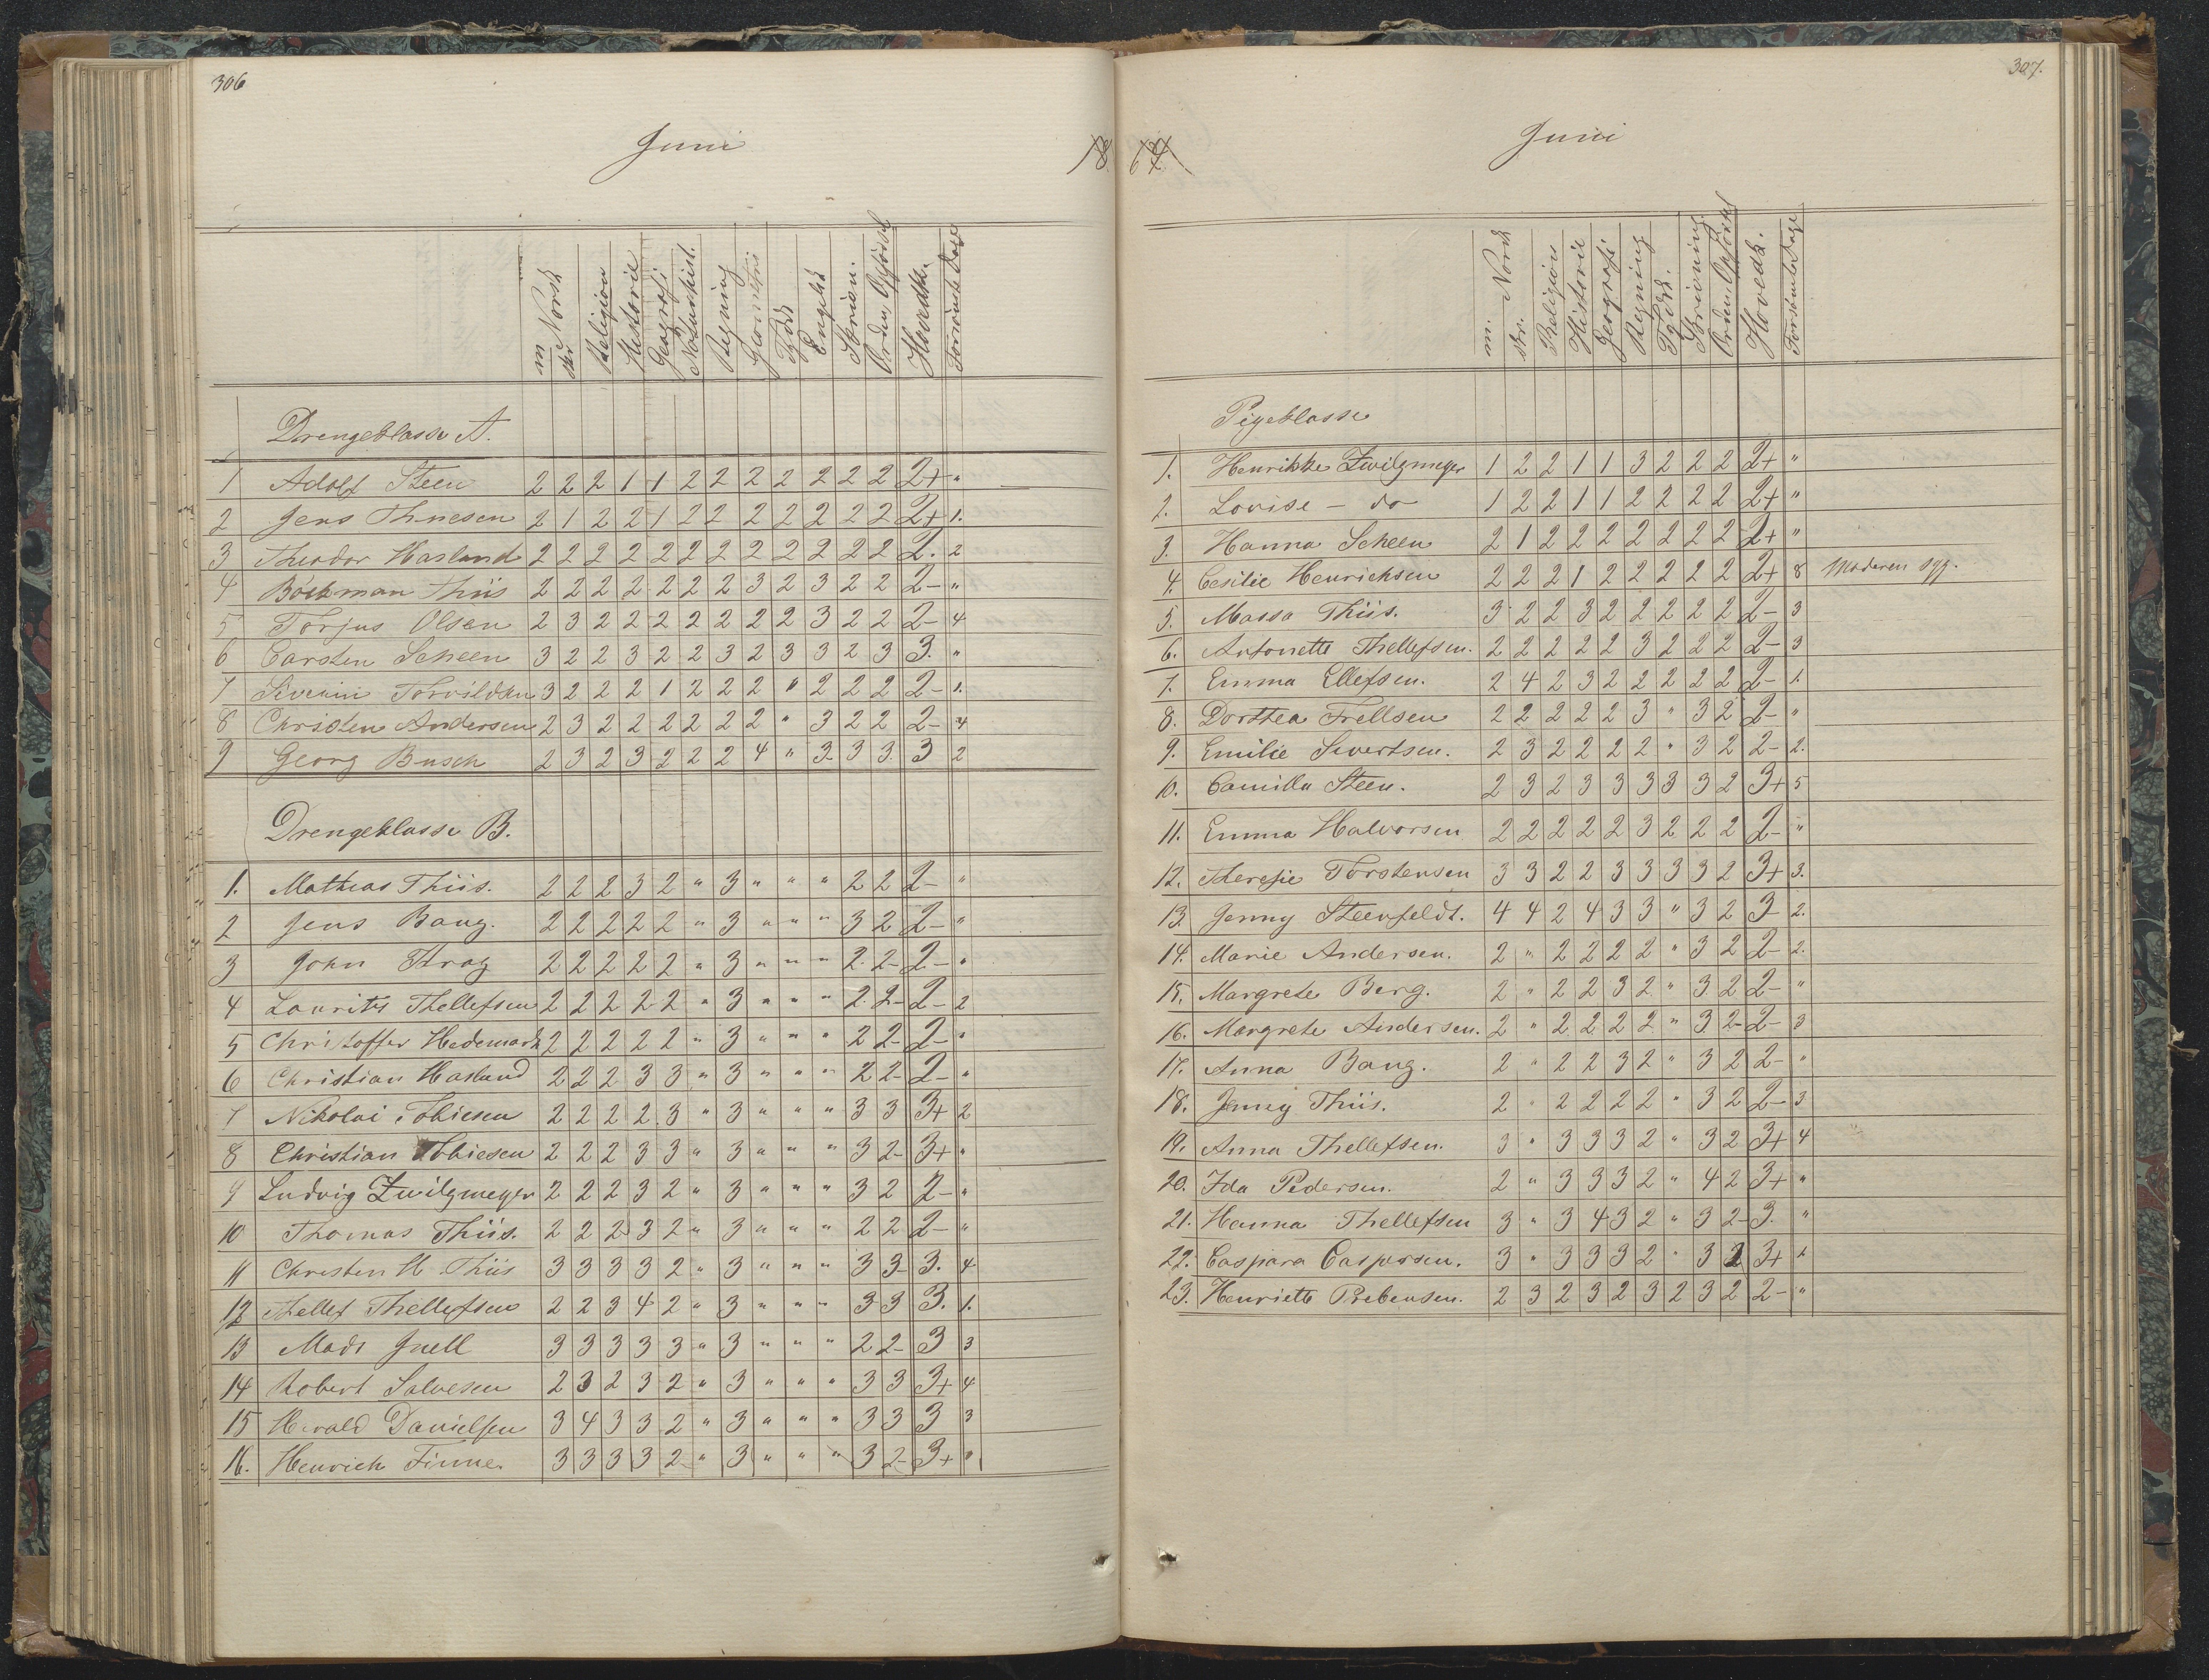 306
Juni
18
m Norsk
skr
Religion
Historie
Geografi
Naturhist.
Regning
Geometri
Tydsk
Engelsk
Skrivn.
Orden, Opførsel
Hovedk.
Forsømte Dage
Drengeklasse A.
1 Adolf Steen 2 2 2 1 1 2 2 2 2 2 2 2 2+ "
2 Jens Thnesen 2 1 2 2 1 2 2 2 2 2 2 2 2+ 1.
3 Theodor Hasland 2 2 2 2 2 2 2 2 2 2 2 2 2. 2
4 Böckman Thiis 2 2 2 2 2 2 2 3 2 3 2 2 2- "
5 Torjus Olsen 2 3 2 2 2 2 2 2 2 3 2 2 2- 4
6 Carsten Scheen 3 2 2 3 2 2 3 2 3 3 2 3 3. "
7 Severin Torvildsen 3 2 2 2 1 2 2 2 " 2 2 2 2- 1.
8 Christen Andersen 2 3 2 2 2 2 2 2 " 3 2 2 2- 4
9 Georg Busch 2 3 2 3 2 2 2 4 " 3 3 3 3 2
Drengeklasse B.
1. Mathias Thiis. 2 2 2 3 2 " 3 " " " 2 2 2- "
2 Jens Bang. 2 2 2 2 2 " 3 " " " 3 2 2- "
3 John Krag 2 2 2 2 2 " 3 " " " 2 2 2- "
4 Laurits Thellefsen 2 2 2 2 2 " 3 " " " 2 2 2- 2
5 Christoffer Hedemark 2 2 2 2 2 " 3 " " " 2 2 2- "
6 Christian Hasland 2 2 2 3 3 " 3 " " " 2 2 2- "
7 Nikolai Tobiesen 2 2 2 2 3 " 3 " " " 3 3 3+ 2
8 Christian Tobiesen 2 2 2 3 3 " 3 " " " 3 2 3+ "
9 Ludvig Zwilgmeyer 2 2 2 3 2 " 3 " " " 3 2 2- "
10 Thomas Thiis. 2 2 2 3 2 " 3 " " " 2 2 2- "
11 Christen H Thiis 3 3 3 3 2 " 3 " " " 3 3 3. 4
12 Thellef Thellefsen 2 2 3 4 2 " 3 " " " 3 3 3. 1.
13 Mads Gnell 3 3 3 3 3 " 3 " " " 2 2 3 3
14 Robert Salvesen 2 3 2 3 2 " 3 " " " 3 3 3+ 4
15 Harald Danielsen 3 4 3 3 2 " 3 " " " 3 3 3 3
16. Henrich Finne. 3 3 3 3 2 " 3 " " " 3 2 3+ "
307.
Juni
64
m. Norsk
skr.
Religion
Historie
Geografi
Regning
Tydsk.
Skrivning
Orden, Opførsel
Hovedk.
Forsømte Dage
Pigeklasse
1. Henrikke Zwilgmeyer 1 2 2 1 1 3 2 2 2 2+ "
2. Lovise - do 1 2 2 1 1 2 2 2 2 2+ "
3. Hanna Scheen 2 1 2 2 2 2 2 2 2 2+ "
4. Cesilie Henrichsen 2 2 2 1 2 2 2 2 2 2+ 8 Moderen syg.
5. Massa Thiis. 3 2 2 3 2 2 2 2 2 2- 3
6. Antonette Thellefsen. 2 2 2 2 2 3 2 2 2 2- 3
7. Emma Ellefsen. 2 4 2 3 2 2 2 2 2 2- 1
8. Dorthea Frellsen 2 2 2 2 2 3 " 3 2 2- "
9. Emilie Sivertsen. 2 3 2 2 2 2 " 3 2 2- 2.
10. Camilla Steen. 2 3 2 3 3 3 3 3 2 3+ 5
11. Emma Halvorsen 2 2 2 2 2 3 2 2 2 2- "
12. Theresie Torstensen 3 3 2 2 3 3 3 3 2 3+ 3.
13. Jenny Steenfeldt. 4 4 2 4 3 3 " 3 2 3 2.
14. Marie Andersen. 2 " 2 2 2 2 " 3 2 2- 2.
15. Margrete Berg. 2 " 2 2 3 2 " 3 2 2- "
16. Margrete Andersen. 2 " 2 2 2 2 " 3 2 2- 3
17. Anna Bang. 2 " 2 2 3 2 " 3 2 2- "
18. Jenny Thiis. 2 " 2 2 2 2 " 3 2 2- 3
19. Anna Thellefsen. 3 " 3 3 3 2 " 3 2 3+ 4
20. Ida Pedersen. 2 " 3 3 3 2 " 4 2 3+ "
21. Hanna Thellefsen 3 " 3 4 3 2 " 3 2 3. "
22. Caspara Caspersen. 3 " 3 3 3 2 " 3 2 3+ 1
23. Henriette Prebensen. 2 3 2 3 2 3 2 3 2 2- "